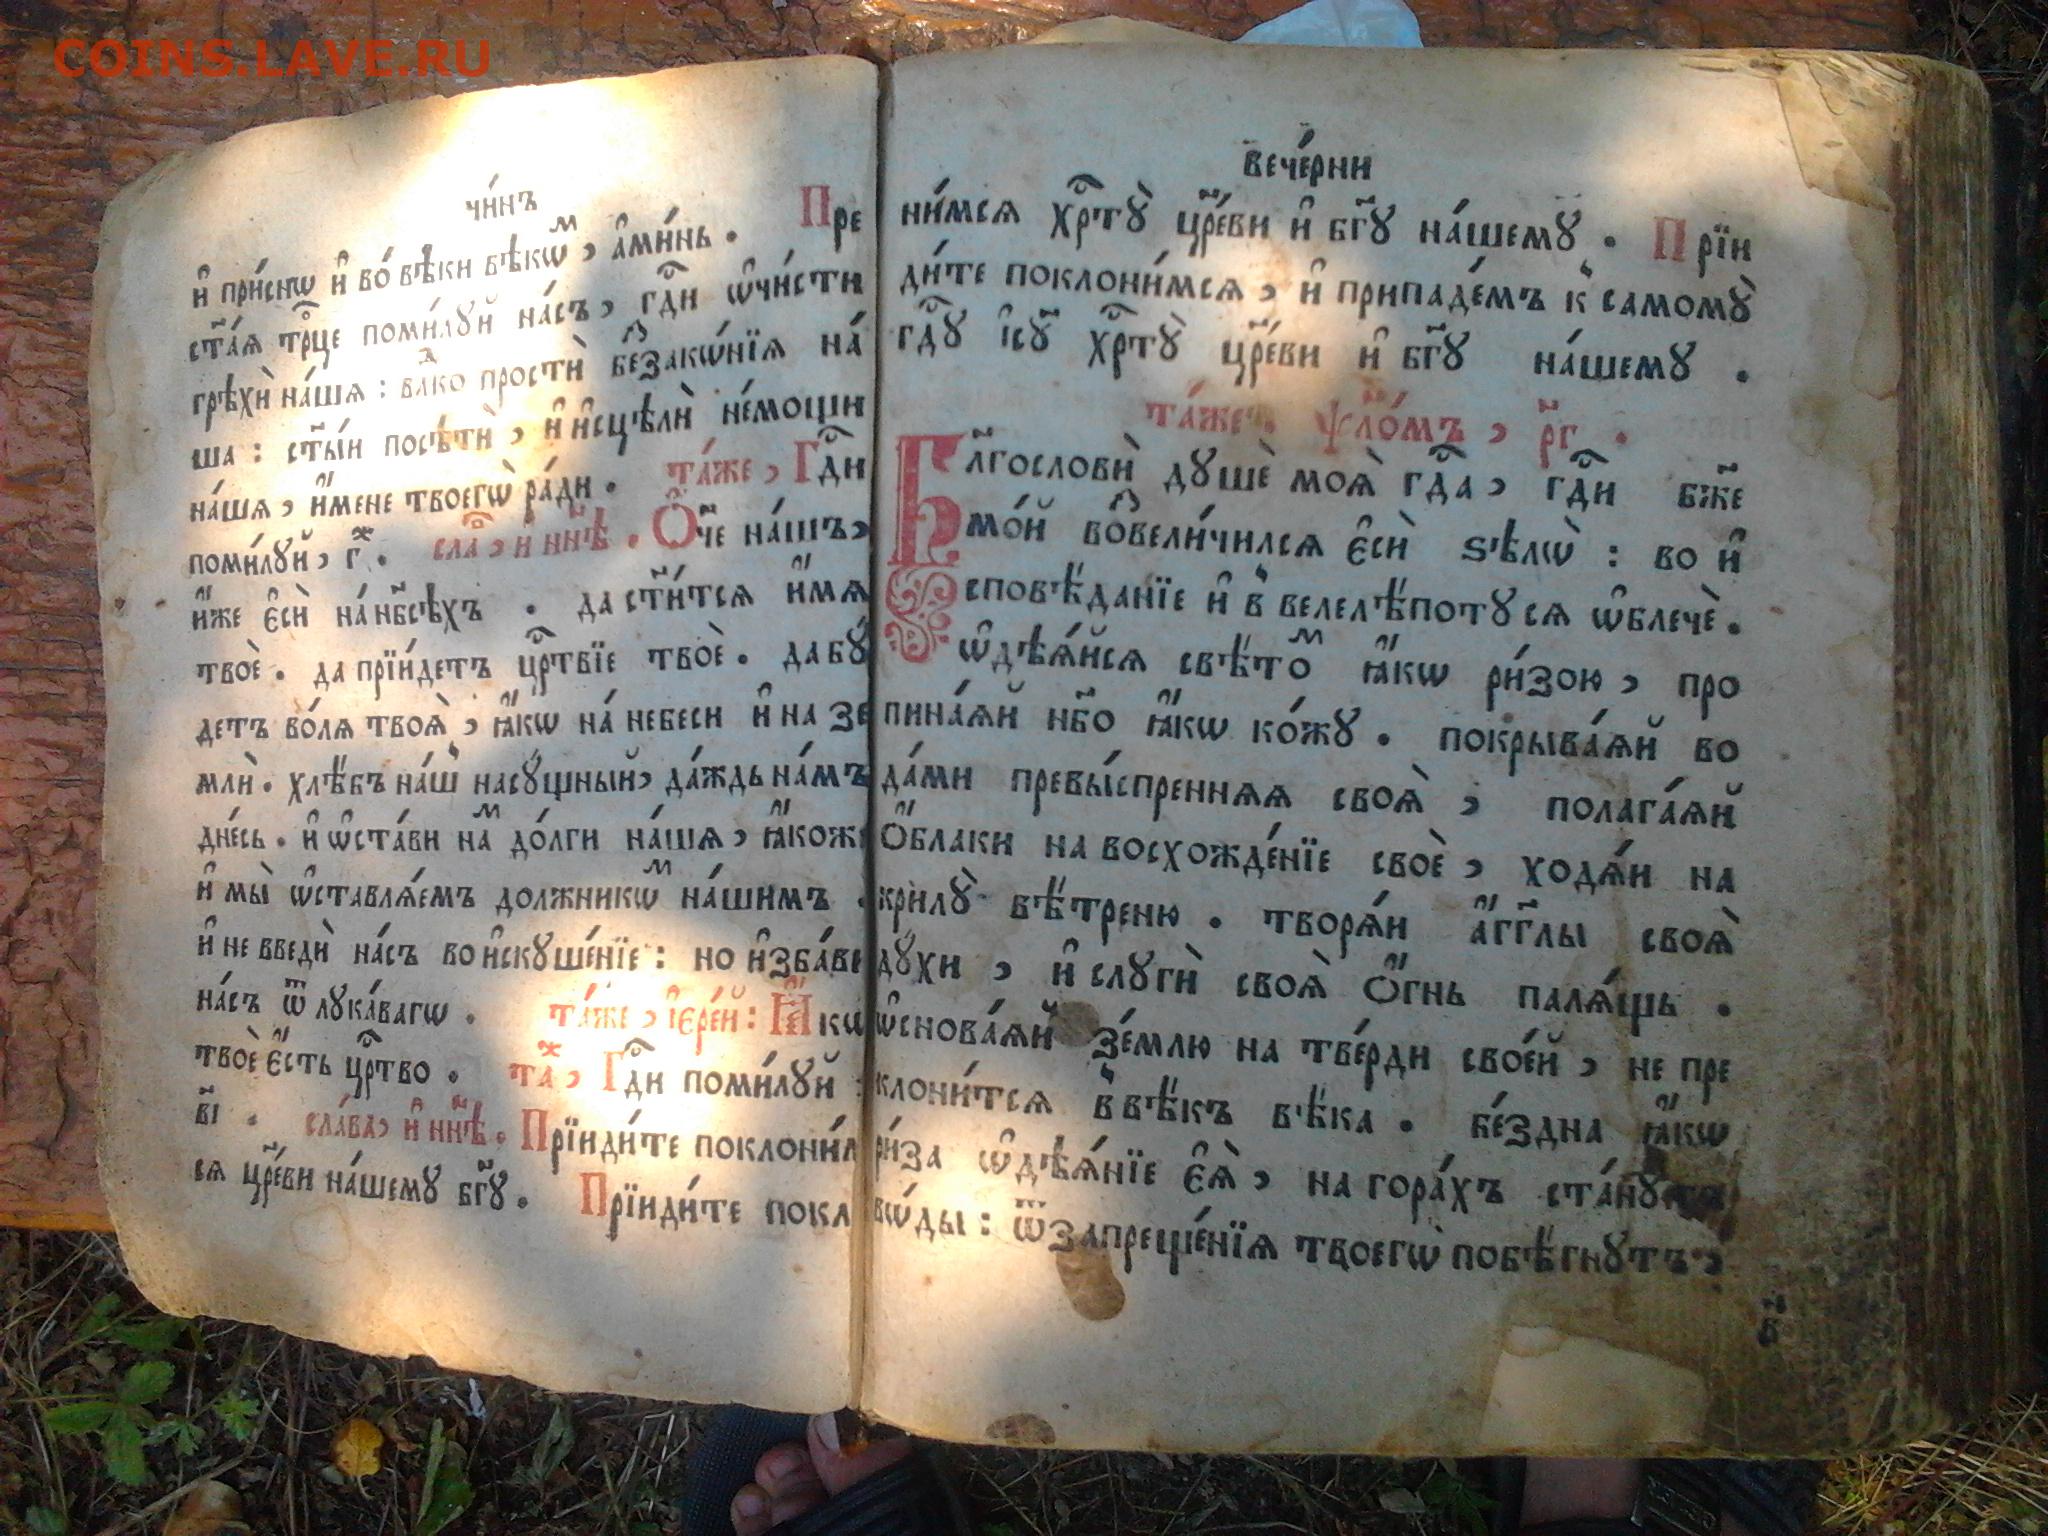 COINS.LAVE.RU
чи́нъ
и҆ при́снѡ и҆ во́ вѣки вѣкѡⷨ, а҆ми́нь. Пре
ст҃а́ѧ трⷪ҇це поми́лꙋй на́съ, гдⷭ҇и ѡ҆чи́сти
грѣхѝ на́шѧ : влⷣко простѝ беⷥзако́нїѧ на́
ша : ст҃ы́й посѣтѝ, и҆ и҆сцѣлѝ не́мощи
на́шѧ, и҆́мене твоегѡ̀ ра́ди. та́же, Гдⷭ҇и
поми́лꙋй, г҃ⷤ. сла̑, и҆ нн҃ѣ. Ѻ҆́ч҃е на́шъ,
и҆́же є҆сѝ на́ нб҃сѣхъ . да ст҃и́тсѧ и҆́мѧ
твоѐ. да прїи́детъ црⷭ҇твїе твоѐ. да бꙋ́
детъ во́лѧ твоѧ̀, ꙗ҆́кѡ на́ небеси и҆ на зе
млѝ. хлѣ́бъ на́шъ насꙋ́щный, да́ждь на́мъ
дне́сь. и҆ ѡ҆ста́ви наⷨ до́лги на́шѧ, ꙗ҆́коже
и҆ мы̀ ѡ҆ставлѧ́емъ должникѡⷨ на́шимъ .
и҆ не введѝ на́съ во и҆скꙋше́нїе : но и҆зба́ви
на́съ ѿ лꙋка́вагѡ . та́же, і҆ере́й : Ꙗ҆́кѡ
твоѐ є҆́сть црⷭ҇тво . таⷤ, Гдⷭ҇и поми́лꙋй :
в҃і . сла́ва, и҆ нн҃ѣ. Прїиди́те поклони́м
сѧ цр҃е́ви на́шемꙋ бг҃ꙋ. Прїиди́те покло
вече́рни
ни́мсѧ хрⷭ҇тꙋ̀ цр҃е́ви и҆ бг҃ꙋ на́шемꙋ . Прїи
ди́те поклони́мсѧ, и҆ припаде́мъ к̾ самомꙋ̀
гдⷭ҇ꙋ і҆с҃ꙋ хрⷭ҇тꙋ̀ цр҃е́ви и҆ бг҃ꙋ на́шемꙋ .
та́же, ѱло́мъ, р҃г .
Бл҃гословѝ дꙋшѐ моѧ̀ гдⷭ҇а, гдⷭ҇и бж҃е
мо́й воⷥвели́чилсѧ є҆сѝ ѕѣлѡ̀ : во и҆
сповѣ́данїе и҆ в̾ велелѣ́потꙋ сѧ ѡ҆блечѐ.
ѡ҆дѣѧ́йсѧ свѣ́тоⷨ ꙗ҆́кѡ ри́зою, про
пина́ѧй нб҃о ꙗ҆́кѡ ко́жꙋ . покрыва́ѧй во
да́ми превы́спреннѧѧ своѧ̀, полага́ѧй
ѻ҆́блаки на восхожде́нїе своѐ, ходѧ́й на
крилꙋ̀ вѣ́треню . творѧ́й а҆́гг҃лы своѧ̀
дꙋ́хи, и҆ слꙋгѝ своѧ̀ ѻ҆́гнь палѧ́щь .
ѡ҆снова́ѧй зе́млю на тве́рди свое́й, не пре
клони́тсѧ в̾ вѣ́къ вѣ́ка . бе́здна ꙗ҆́кѡ
ри́за ѡ҆дѣѧ́нїе є҆ѧ̀, на гора́хъ ста́нꙋтъ
вѡ́ды : ѿ запреще́нїѧ твоегѡ̀ побѣ́гнꙋтъ,
в҃